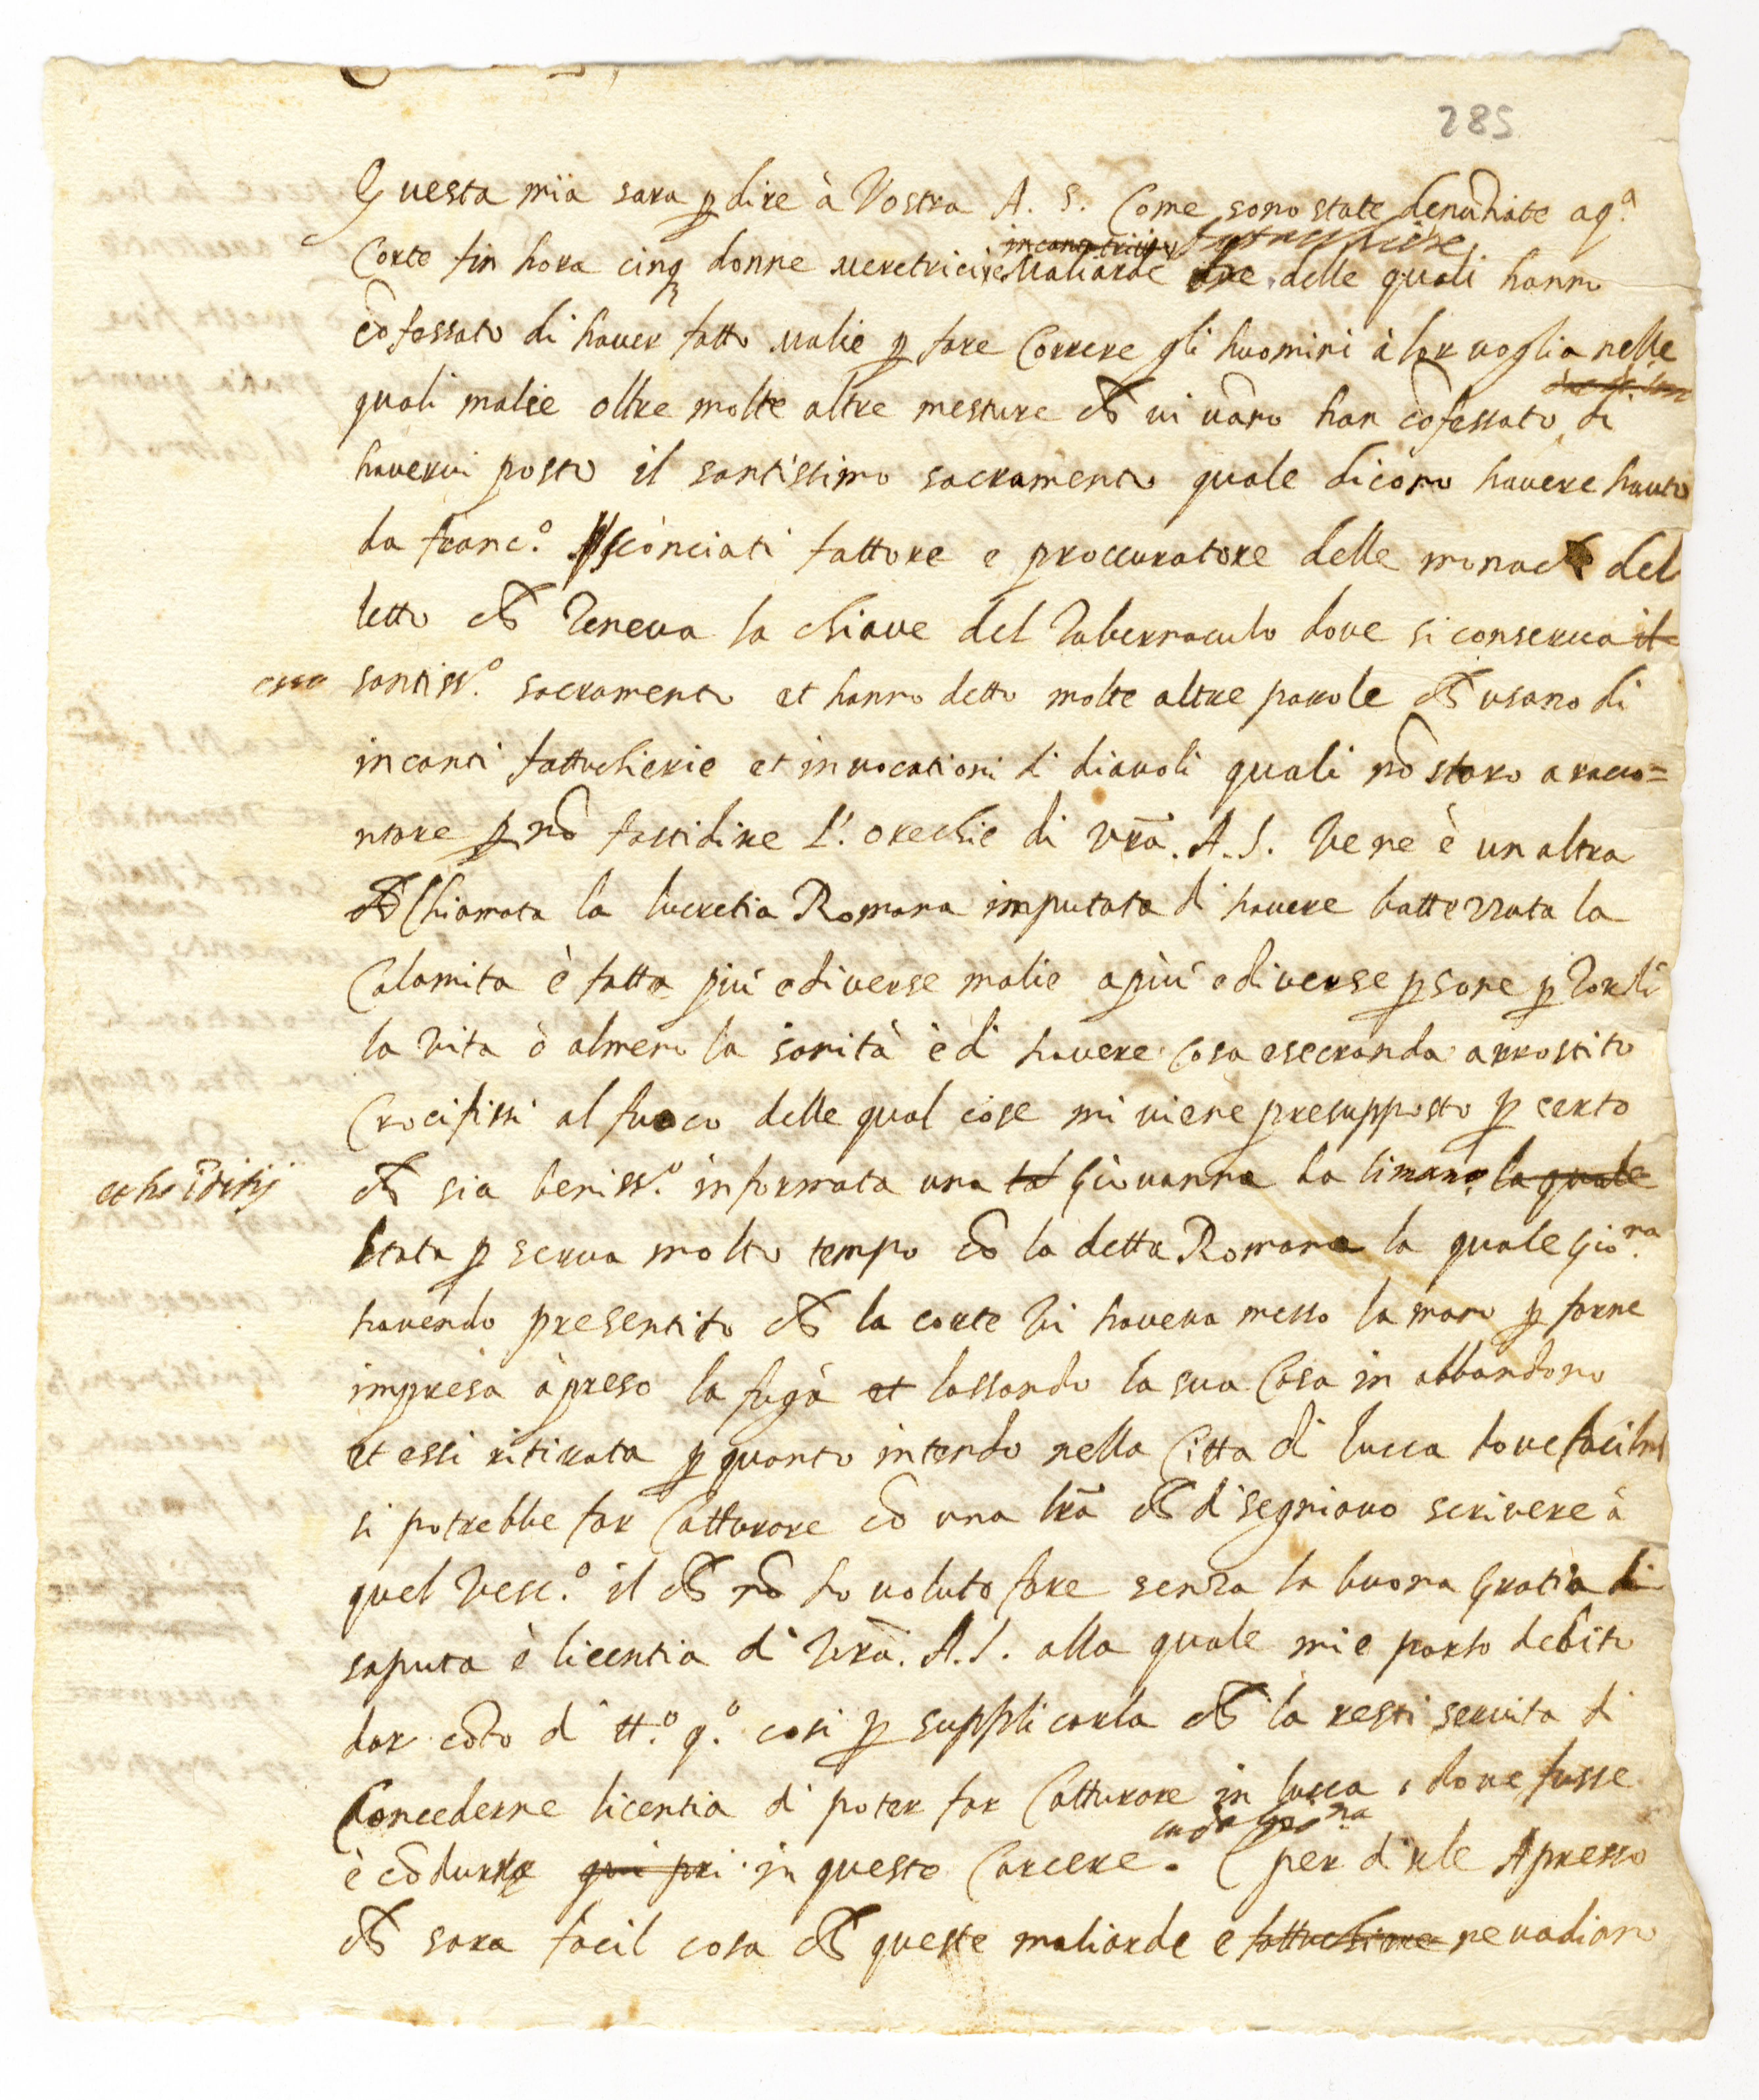 285
Questa mia sara p dire à Vostra A. S. Come sono state denūtiate aq.ª
incantatrici fattucchiere
Corte fin hora cinq donne meretrici e Maliarde tre delle quali hanno
cōfessato di haver fatto malie p fare Correre gli huomini à lor voglia nelle
quali malie oltre molte altre mesture ch vi vāno han cōfessato di
havervi posto il santissimo sacramento quale dicono havere hauto
da franc.º Sconciati fattore e proccuratore delle monach del
letto ch Teneva la chiave del Tabernaculo dove si conserva il
esso santiss.º sacramento et hanno detto molte altre parole ch usano di
incanti fattuchierie et invocationi di diavoli quali nō staro a racco=
ntare p nō fastidire l'orechie di vrā. A. S. Ve ne è un altra
ch Chiamata la lucretia Romana imputata di havere battezzata la
Calamita è fatto più e diverse malie a più e diverse psone p Torli
la vita ò almeno la sanità è di havere cosa esecranda arrostito
Crocifissi al fuoco delle qual cose mi viene presupposto p certo
ch sia beniss.º informata una tal Giovanna da limano la quale
stata p serva molto tempo cō la detta Romana la quale Gio.na
havendo presentito ch la corte vi haveva messo la mano p farne
impresa à preso la fuga et lassando la sua Casa in abbandono
et essi ritirata p quanto intendo nella Citta di lucca dove facilm
si potrebbe far Catturare cō una lrā ch disegniavo scrivere à
quel Vesc.º il ch nō ho voluto fare senza la buona gratia di
saputa è licentia di Vrā. A. S. alla quale mi e parso debito
dar cōto di tt.º q.º cosi p supplicarla ch la resti servita di
Concederne licentia di poter far Catturare in lucca, dove fusse
è cōdurla qui pri in queste Carcere. per dirle Apresso
ch sara facil cosa ch queste maliarde e fattuchiere ne vadiano